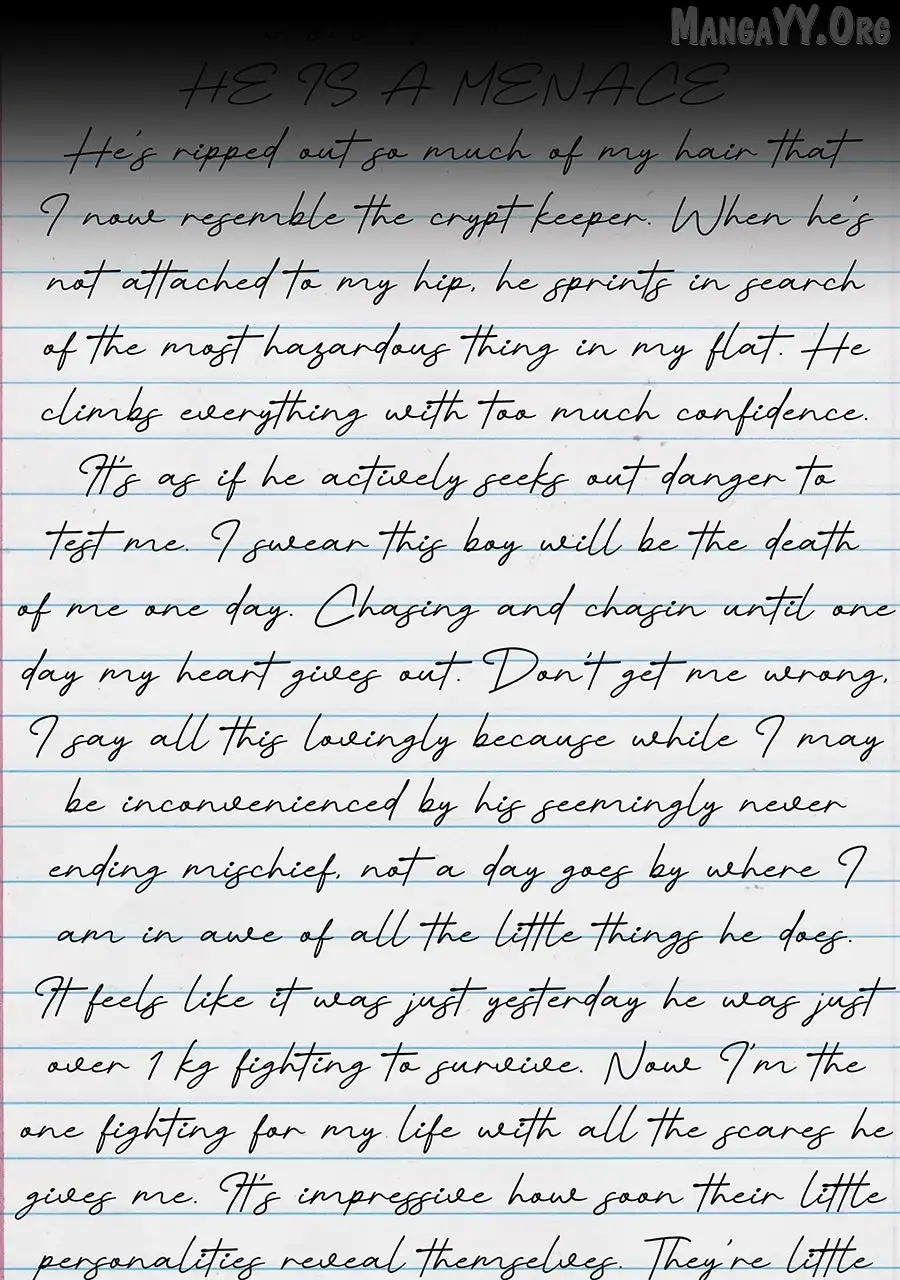 MANGAYY.ORG
HE IS A MENACE
He's ripped out so much of my hair that
I now resemble the crypt keeper. When he's
not attached to my hip, he sprints in search
of the most hazardous thing in my flat. He
climbs everything with too much confidence.
It's as if he actively seeks out danger to
test me. I swear this boy will be the death
of me one day. Chasing and chasin until one
day my heart gives out. Don't get me wrong,
I say all this lovingly because while I may
be inconvenienced by his seemingly never
ending mischief, not a day goes by where I
am in awe of all the little things he does.
It feels like it was just yesterday he was just
over 1 kg fighting to survive. Now I'm the
one fighting for my life with all the scares he
gives me. It's impressive how soon their little
personalities reveal themselves. They're little